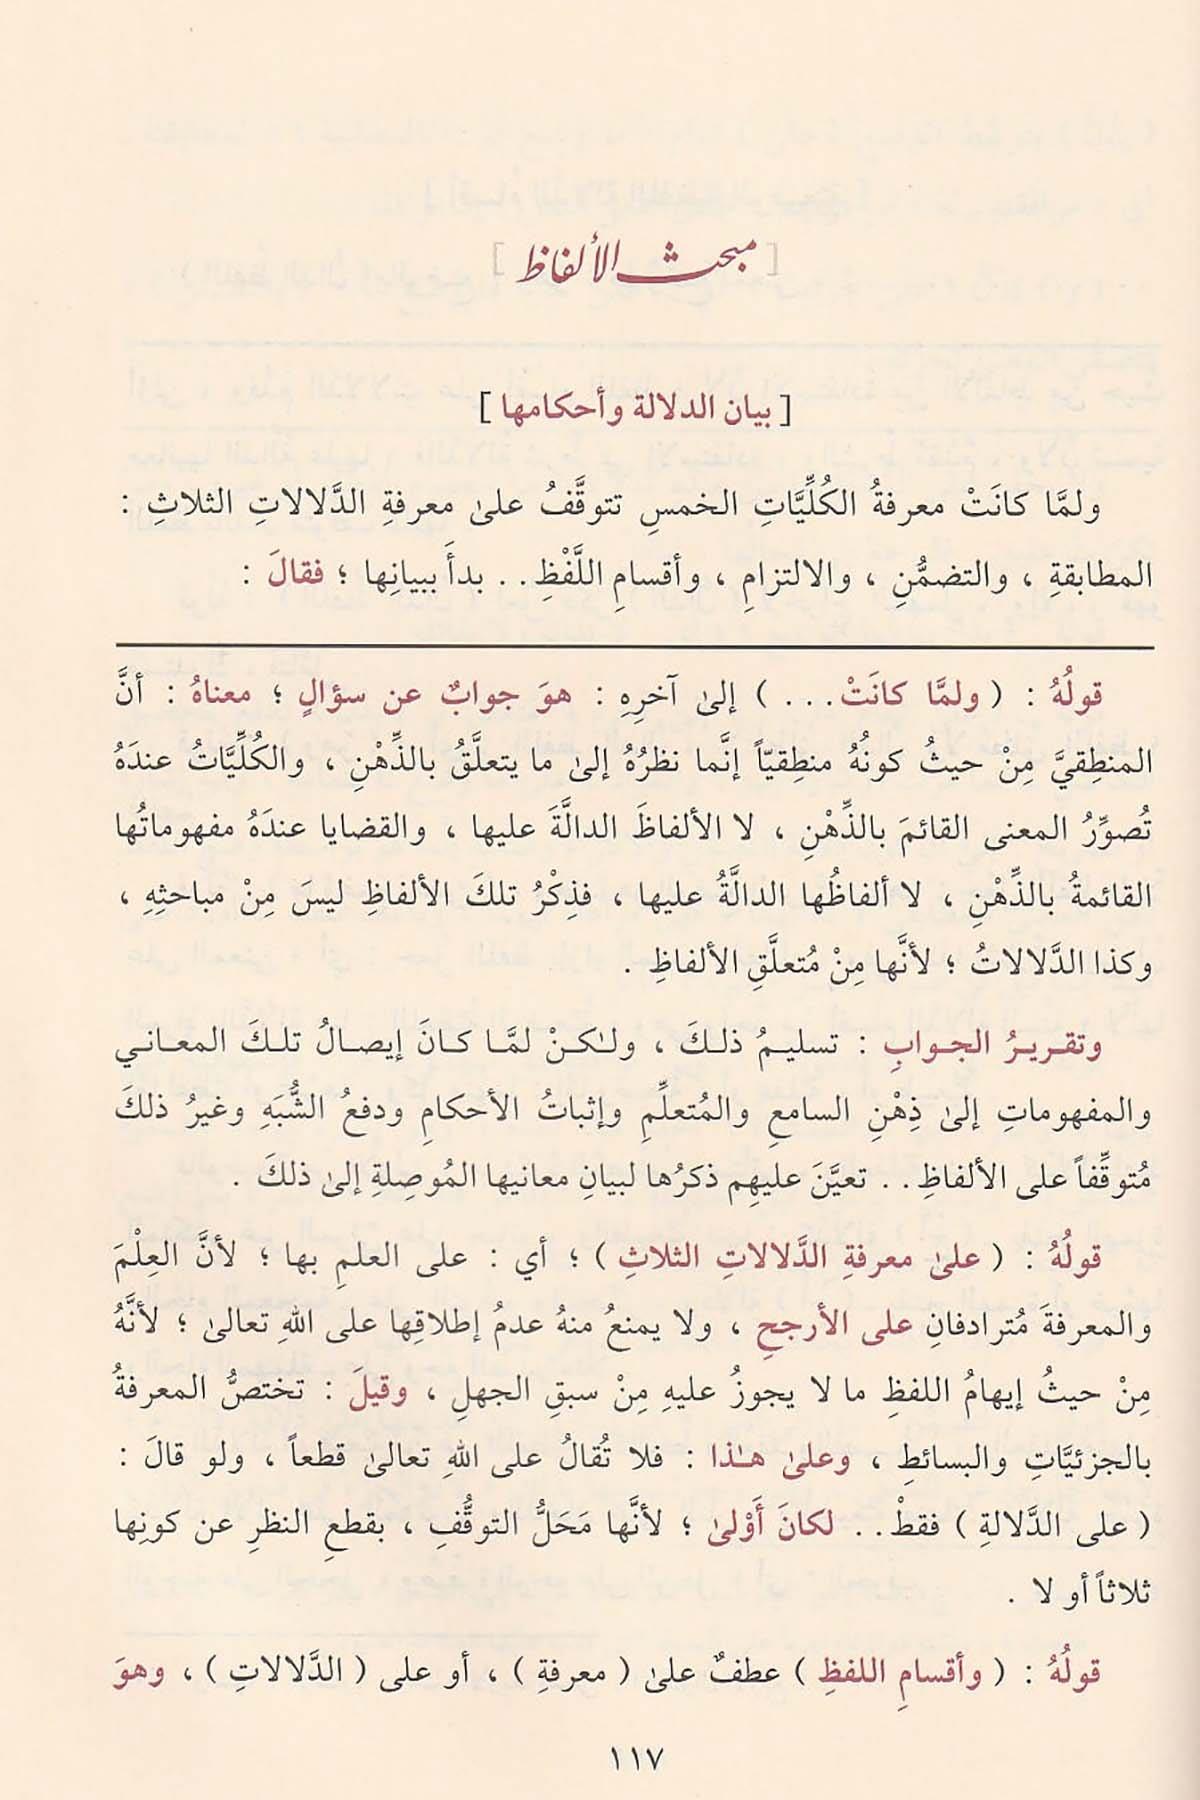 [ مبحث الألفاظ ]
[ بيان الدلالة وأحكامها ]
ولمَّا كانَتْ معرفةُ الكُلِّيَّاتِ الخمسِ تتوقَّفُ علىٰ معرفةِ الدَّلالاتِ الثلاثِ :
المطابقةِ ، والتضمُّنِ ، والالتزامِ ، وأقسامِ اللَّفْظِ . . بدأَ ببيانِها ؛ فقالَ :
قولُهُ : ( ولمَّا كانَتْ . . . ) إلىٰ آخرِهِ : هوَ جوابٌ عن سؤالٍ ؛ معناهُ : أنَّ
المنطِقيَّ مِنْ حيثُ كونُهُ منطِقيّاً إنَّما نظرُهُ إلىٰ ما يتعلَّقُ بالذِّهْنِ ، والكُلِّيَّاتُ عندَهُ
تُصوِّرُ المعنى القائمَ بالذِّهْنِ ، لا الألفاظَ الدالَّةَ عليها ، والقضايا عندَهُ مفهوماتُها
القائمةُ بالذِّهْنِ ، لا ألفاظُها الدالَّةُ عليها ، فذِكْرُ تلكَ الألفاظِ ليسَ مِنْ مباحثِهِ ،
وكذا الدَّلالاتُ ؛ لأنَّها مِنْ مُتعلَّقِ الألفاظِ .
وتقريرُ الجوابِ : تسليمُ ذلكَ ، ولـٰكنْ لمَّا كانَ إيصالُ تلكَ المعاني
والمفهوماتِ إلىٰ ذِهْنِ السامعِ والمُتعلِّمِ وإثباتُ الأحكامِ ودفعُ الشُّبَهِ وغيرُ ذلكَ
مُتوقِّفاً على الألفاظِ . . تعيَّنَ عليهِم ذكرُها لبيانِ معانيها المُوصِلةِ إلىٰ ذلكَ .
قولُهُ : ( علىٰ معرفةِ الدَّلالاتِ الثلاثِ ) ؛ أي : على العلمِ بها ؛ لأنَّ العِلْمَ
والمعرفةَ مُترادفانِ على الأرجحِ ، ولا يمنعُ منهُ عدمُ إطلاقِها على اللهِ تعالىٰ ؛ لأنَّهُ
مِنْ حيثُ إيهامُ اللفظِ ما لا يجوزُ عليهِ مِنْ سبقِ الجهلِ ، وقيلَ : تختصُّ المعرفةُ
بالجزئيَّاتِ والبسائطِ ، وعلىٰ هـٰذا : فلا تُقالُ على اللهِ تعالىٰ قطعاً ، ولو قالَ :
( على الدَّلالةِ ) فقطْ . . لكانَ أَوْلىٰ ؛ لأنَّها مَحَلُّ التوقُّفِ ، بقطعِ النظرِ عن كونِها
ثلاثاً أو لا .
قولُهُ : ( وأقسامِ اللفظِ ) عطفٌ علىٰ ( معرفةِ ) ، أو على ( الدَّلالاتِ ) ، وهوَ
١١٧